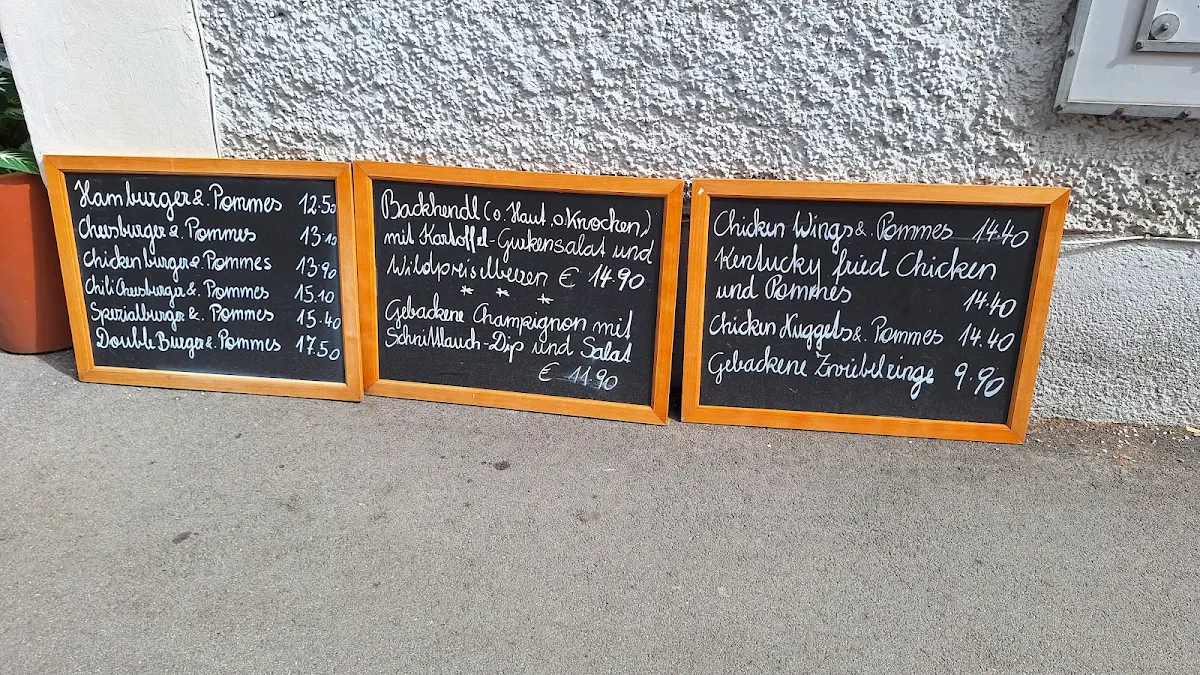 Hamburger & Pommes 12.50
Cheesburger & Pommes 13.10
Chickenburger & Pommes 13.90
Chili Cheesburger & Pommes 15.10
Spezialburger & Pommes 15.40
Double Burger & Pommes 17.50
Backhendl (o. Haut. o Knochen)
mit Kartoffel-Gurkensalat und
Wildpreiselbeeren € 14.90
* * *
Gebackene Champignon mit
Schnittlauch-Dip und Salat
€ 11.90
Chicken Wings & Pommes 14.40
Kentucky fried Chicken
und Pommes 14.40
Chicken Nuggets & Pommes 14.40
Gebackene Zwiebelringe 9.90